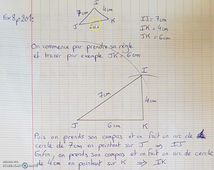 I
7cm
4cm
IJ = 7cm
J
6cm
K
IK = 4cm
JK = 6cm
On commence par prendre sa règle
et tracer par exemple JK = 6cm
I
7cm
4cm
J
6cm
K
Puis on prends son compas et on fait un arc de
cercle de 7cm en pointant sur J ⇒ IJ
Enfin, on prends son compas et on fait un arc de cercle
de 4cm en pointant sur K ⇒ IK